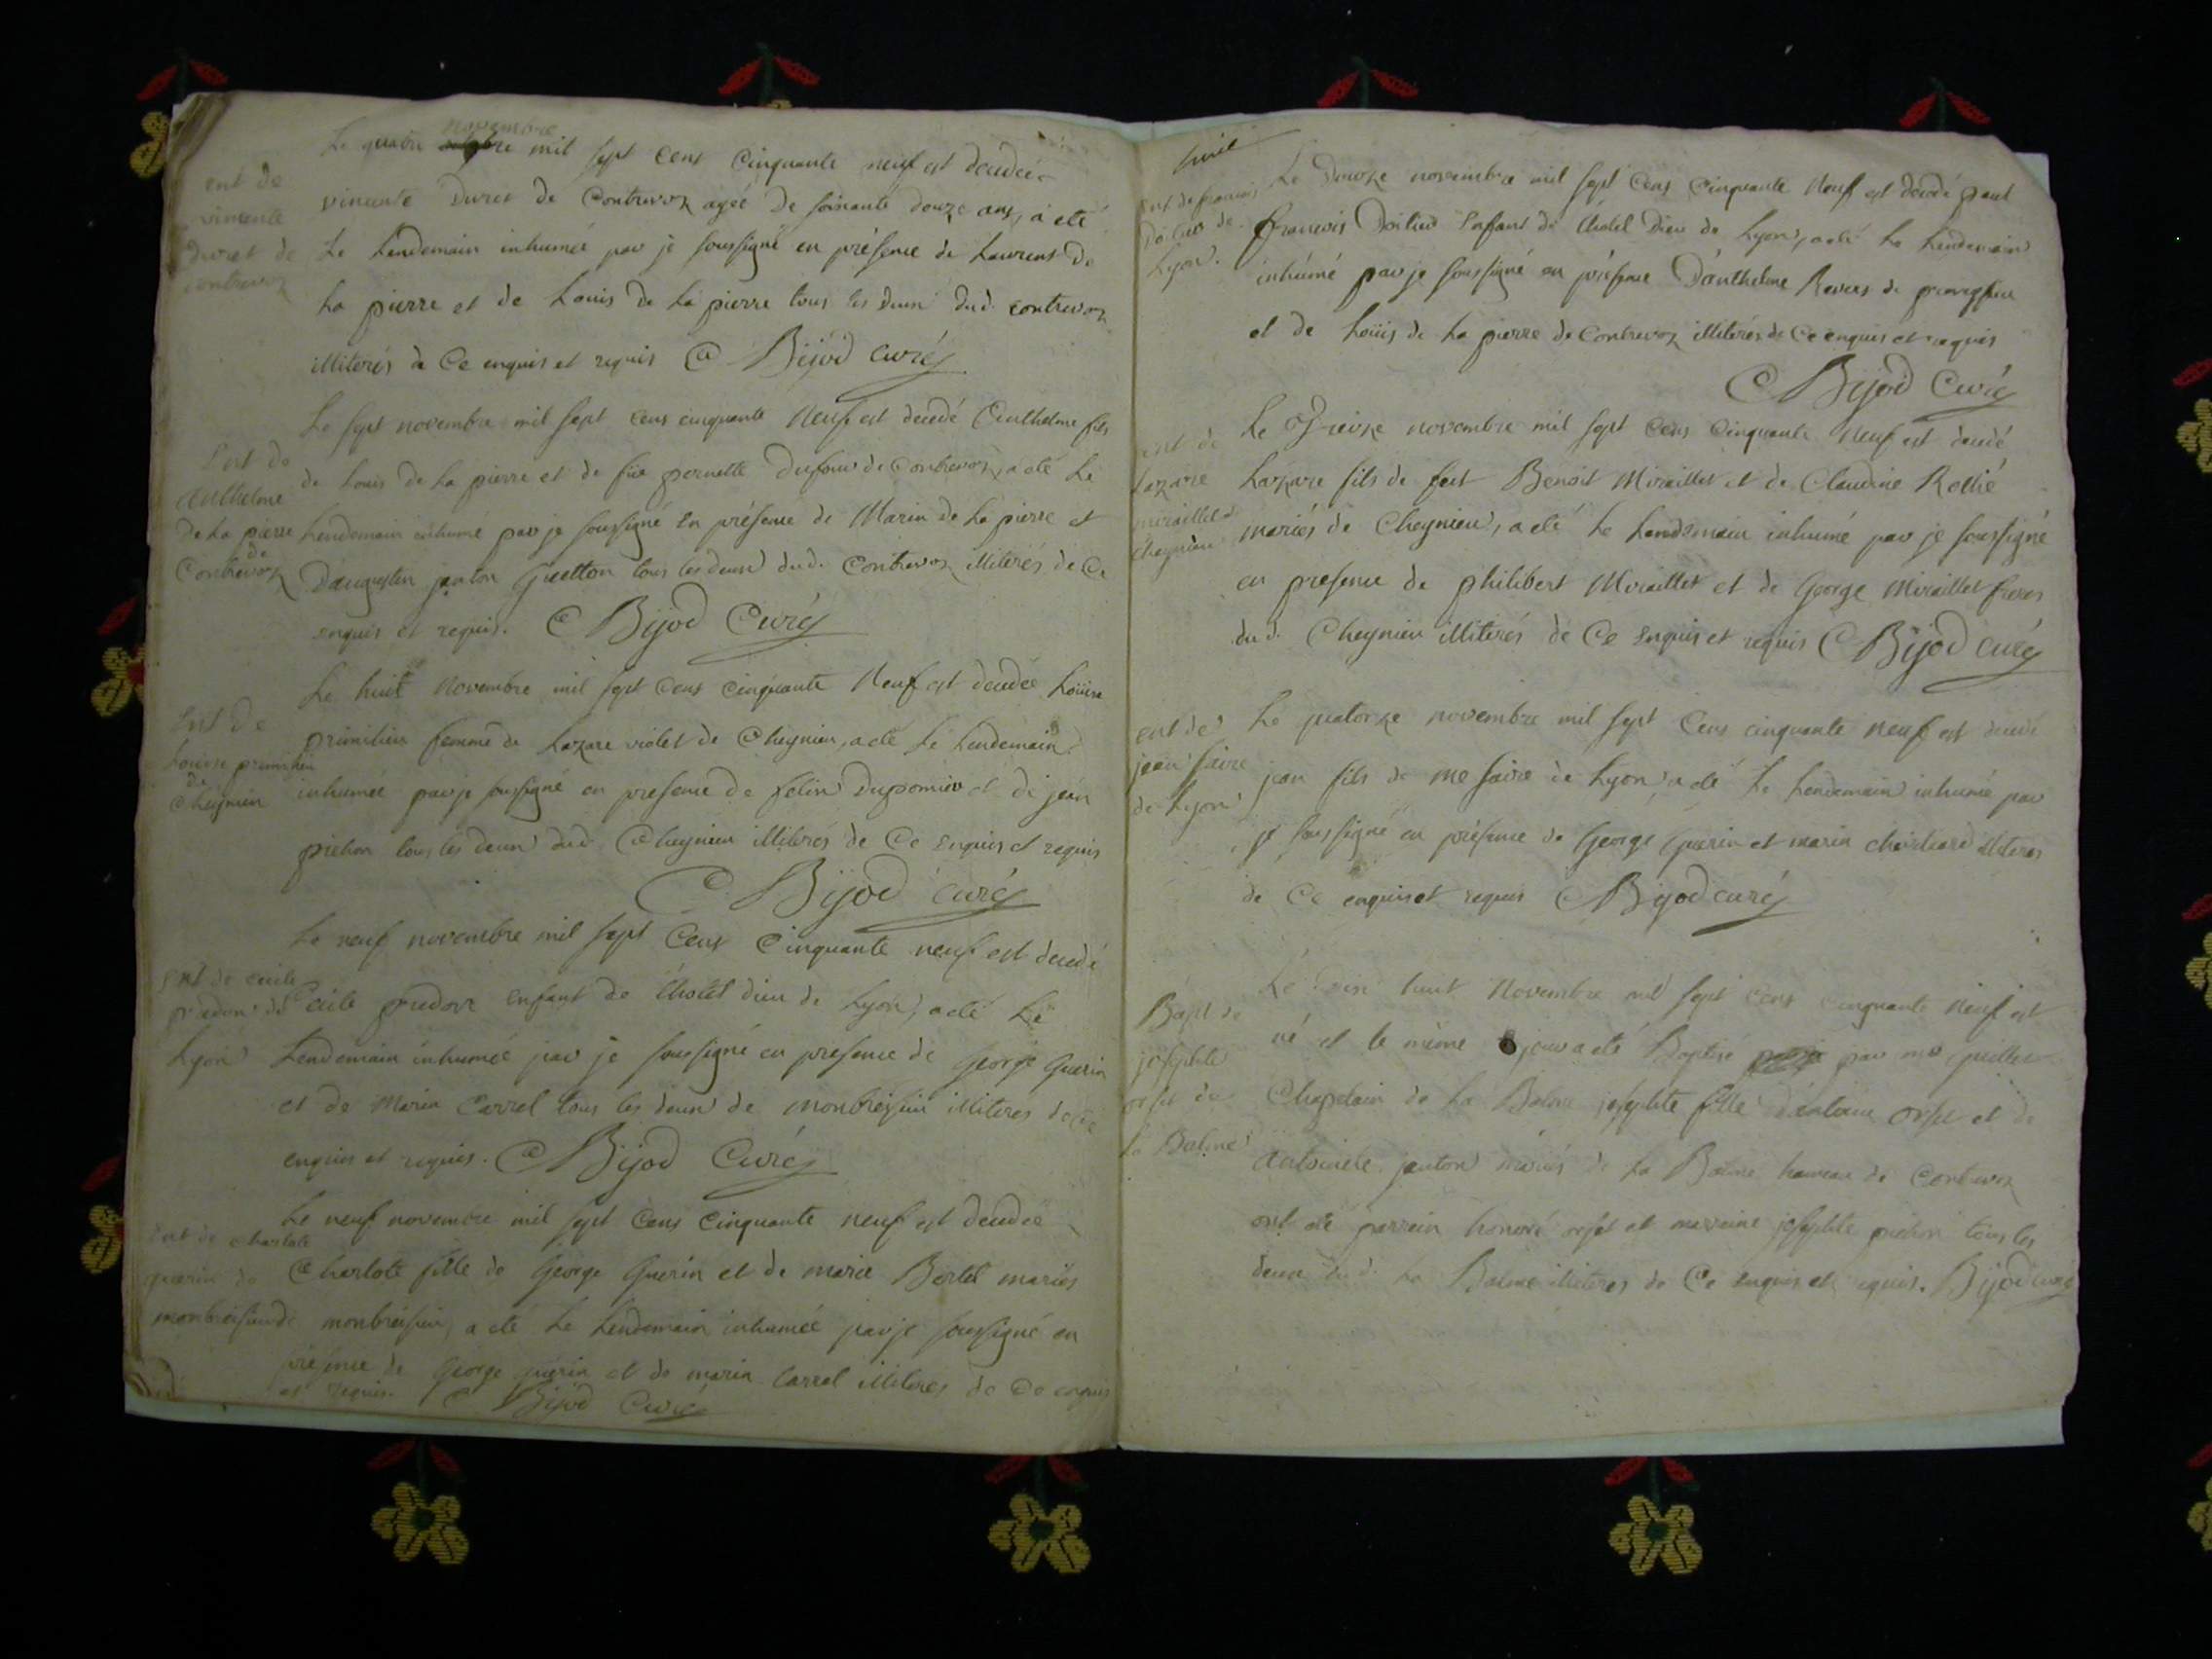 novembre
Le quatre mil sept cens cinquante neuf est decedée
ent de
vincente
Duret de
contrevoz
vincente Duret de Contrevoz agée de soixante douze ans, a eté
Le Lendemain inhumée par je soussigné en présence de Laurent de
La pierre et de Louis de La pierre tous les deux dud. contrevoz
illiterés de Ce enquis et requis Bijod curé
Le sept novembre mil sept cens cinquante Neuf est decedé Anthelme fils
Ent de
Anthelme
de La pierre
de
Contrevoz
de Louis de La pierre et de füe pernette Dufour de Contrevoz, a eté Le
Lendemain inhumé par je soussigné En présence de Marin de La pierre et
D'augustin janton Guetton tous les deux dud. Contrevoz illiterés de Ce
enquis et requis. Bijod Curé
Le huit Novembre mil sept Cens Cinquante Neuf est decedée Loüise
Ent de
Louise primilieu
de
Cheynieu
primilieu femme de Lazare violet de Cheynieu, a eté Le Lendemain
inhumée par je soussigné en presence de felin Dupomier et de jean
pichon tous les deux dud. Cheynieu illiterés de Ce Enquis et requis
Bijod curé
Le neuf novembre mil sept Cens Cinquante neuf est decedé
Ent de cecile
pradon de
Lyon
Cecile pradon Enfant de L'hotel dieu de Lyon, a eté Le
Lendemain inhumée par je soussigné en presence de George Guerin
et de Marin Carrel tous les deux de monbreisieu illiterés de Ce
enquis et requis. Bijod Curé
Le neuf novembre mil sept Cens Cinquante neuf est decedée
Ent de charlote
guerin de
monbreisieu
Charlote fille de George Guerin et de marie Bertel mariés
de monbreisieu, a eté Le Lendemain inhumée par je soussigné en
présence de George guerin et de marin Carrel illiterés de Ce enquis
et requis. Bijod Curé
Le Douze novembre mil sept Cens Cinquante Neuf est decedé
Ent de francois
de
Lyon.
francois Enfant de L'hotel Dieu de Lyon, a eté Le Lendemain
inhumé par je soussigné en présence D'anthelme de
et de Loüis de La pierre de Contrevoz illiterés de Ce enquis et requis
Bijod Curé
Le Treize novembre mil sept Cens Cinquante Neuf est decedé
ent de
Lazare
miraillet de
Cheynieu
Lazare fils de feu Benoit Miraillet et de Claudine Rollié
mariés de Cheynieu, a eté Le Lendemain inhumé par je soussigné
en presence de philibert Miraillet et de George Miraillet freres
dud. Cheynieu illiterés de Ce Enquis et requis Bijod curé
Le quatorze novembre mil sept Cens cinquante neuf est decedé
ent de
jean faire
de Lyon
jean fils de me faire de Lyon, a eté Le Lendemain inhumé par
je soussigné en présence de George Guerin et marin illiterés
de Ce enquis et requis Bijod curé
Le Dix huit Novembre mil sept cens cinquante Neuf est
Bapt de
josephte
orset de
la Balme
né et le même jour a eté Baptisé par
Chapelain de La Balme josephte fille d'antoine orset et de
Antoinete janton mariés de La Balme hameau de Contrevoz
ont eté parrein honoré orset et marreine josephte pichon tous les
deux dud. La Balme illiterés de Ce Enquis et requis. Bijod curé